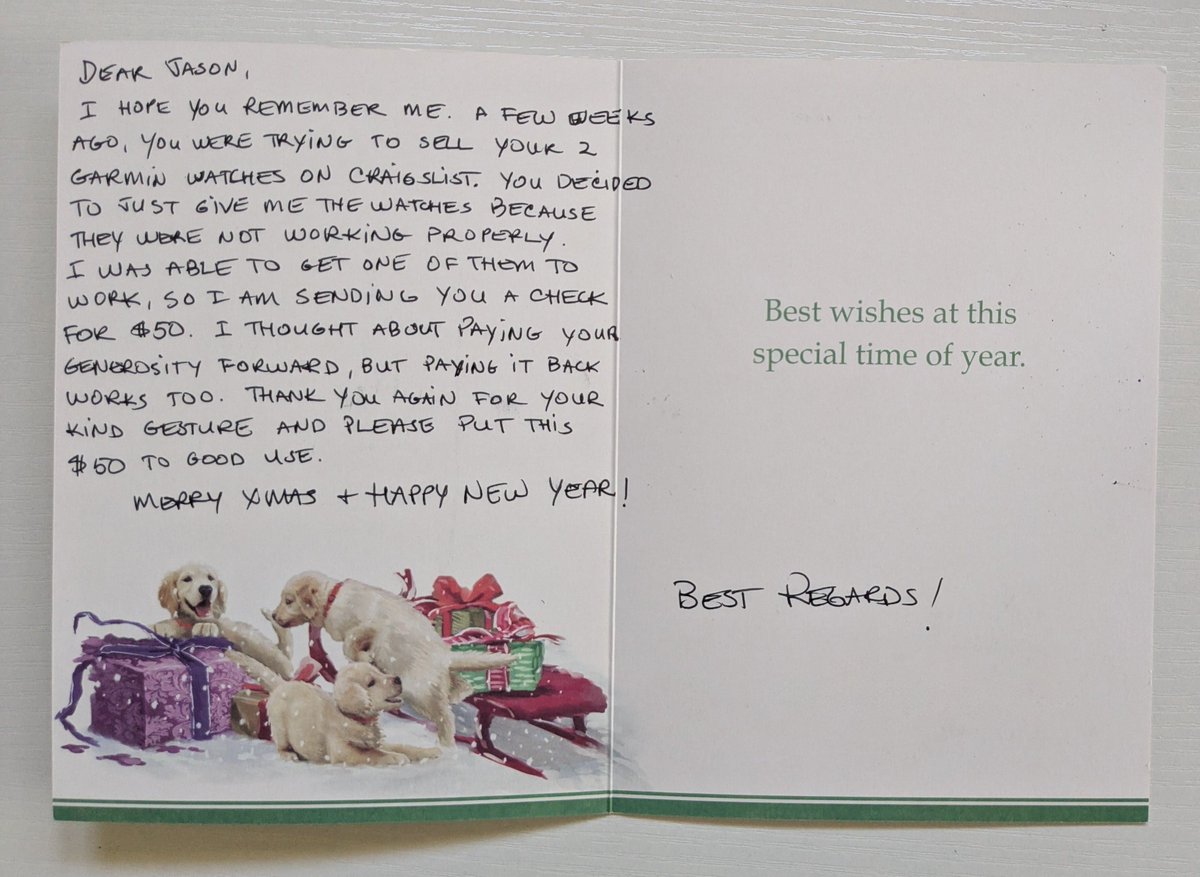 DEAR JASON,
I HOPE YOU REMEMBER ME. A FEW WEEKS
AGO, YOU WERE TRYING TO SELL YOUR 2
GARMIN WATCHES ON CRAIGSLIST. YOU DECIDED
TO JUST GIVE ME THE WATCHES BECAUSE
THEY WERE NOT WORKING PROPERLY.
I WAS ABLE TO GET ONE OF THEM TO
WORK, SO I AM SENDING YOU A CHECK
FOR $50. I THOUGHT ABOUT PAYING YOUR
GENEROSITY FORWARD, BUT PAYING IT BACK
WORKS TOO. THANK YOU AGAIN FOR YOUR
KIND GESTURE AND PLEASE PUT THIS
$50 TO GOOD USE.
MERRY XMAS + HAPPY NEW YEAR!
Best wishes at this
special time of year.
BEST REGARDS!